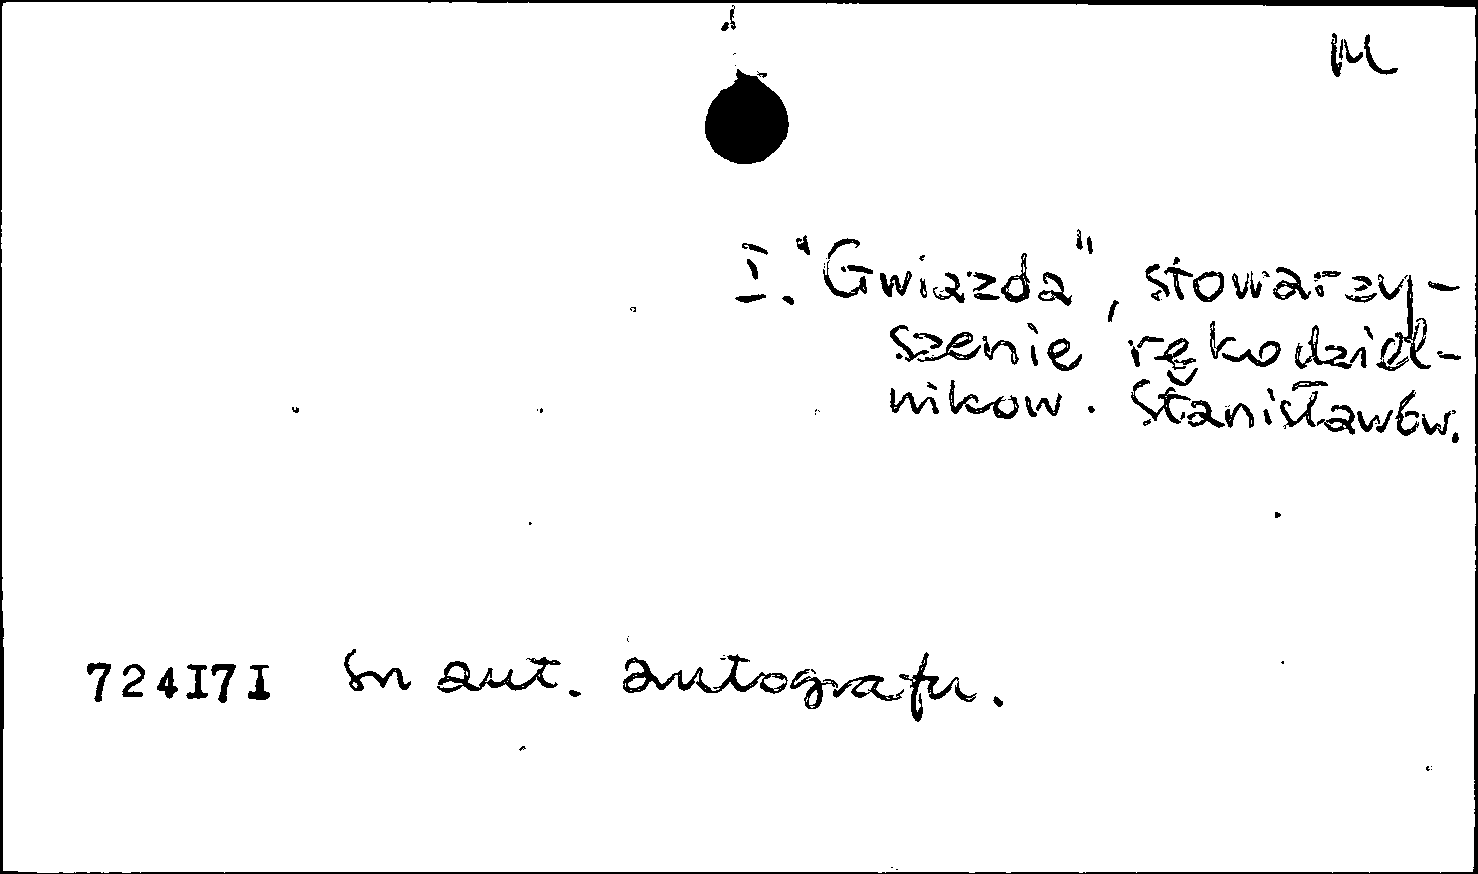 M
I. "Gwiazda", stowarzy-
szenie rękodziel-
nikow. Stanisławów.
724I7I Sn aut. autografu.